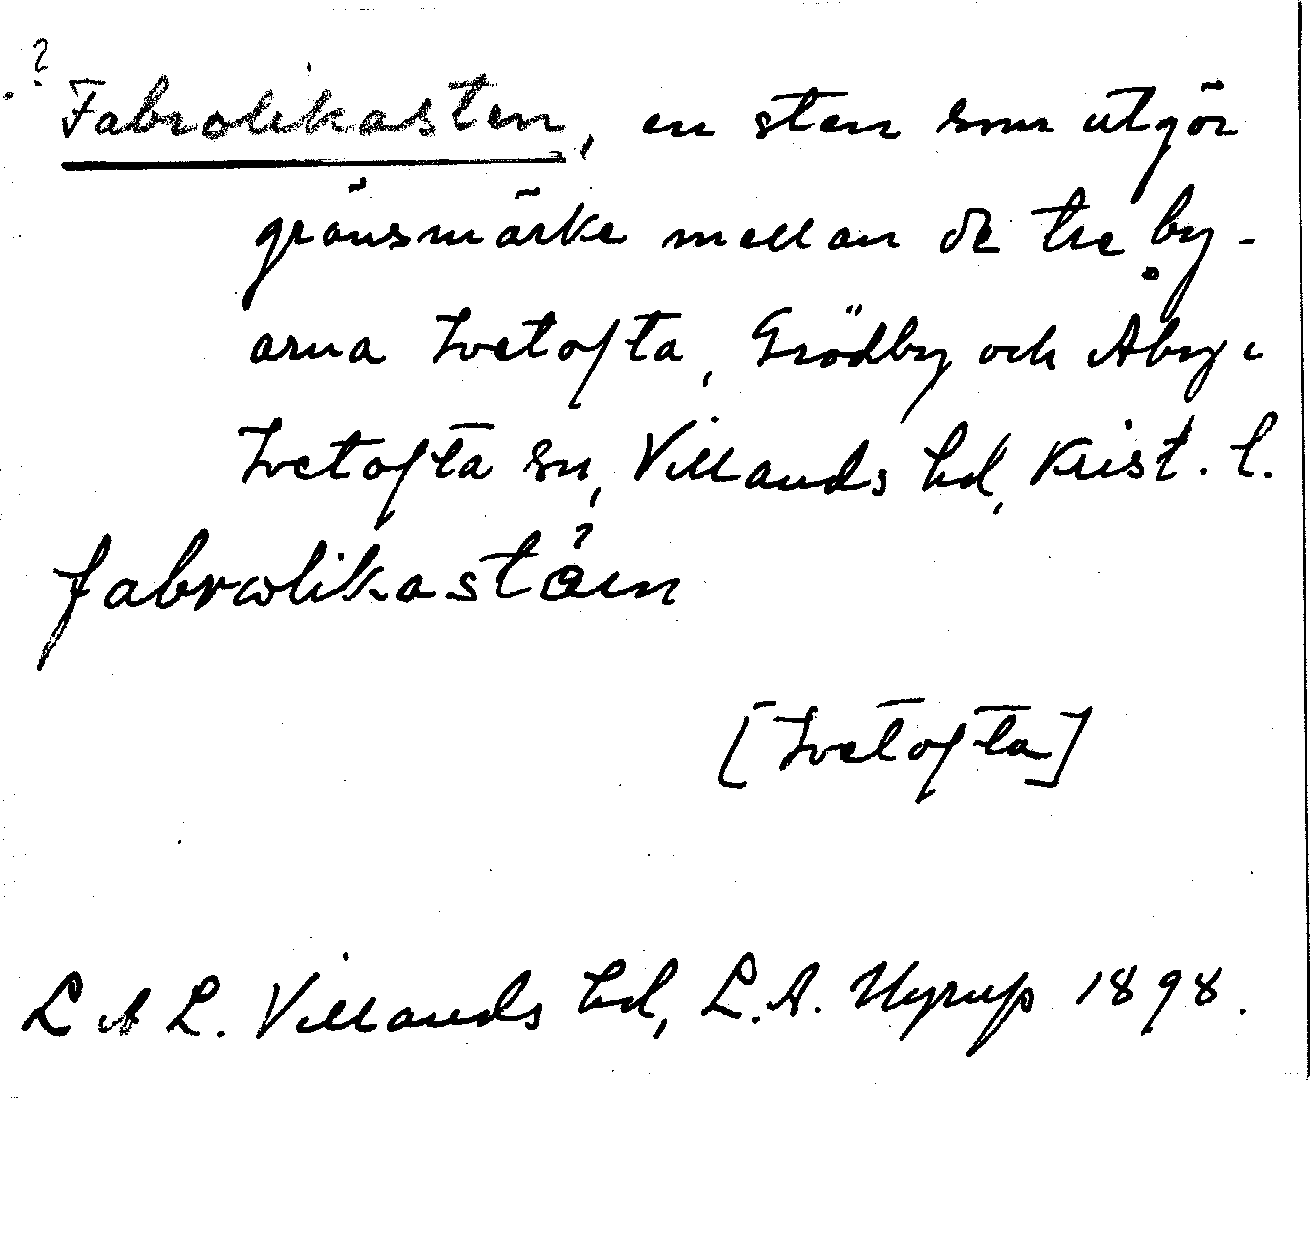 ? Fabrolikasten, en sten som utgör
gränsmärke mellan de tre by-
arna Ivetofta, Grödby och Åby i
Ivetofta sn, Villands hd, Krist. l.
fabrolikastäin
[Ivetofta]
L A L. Villands hd, L. A. Hyrup 1898.